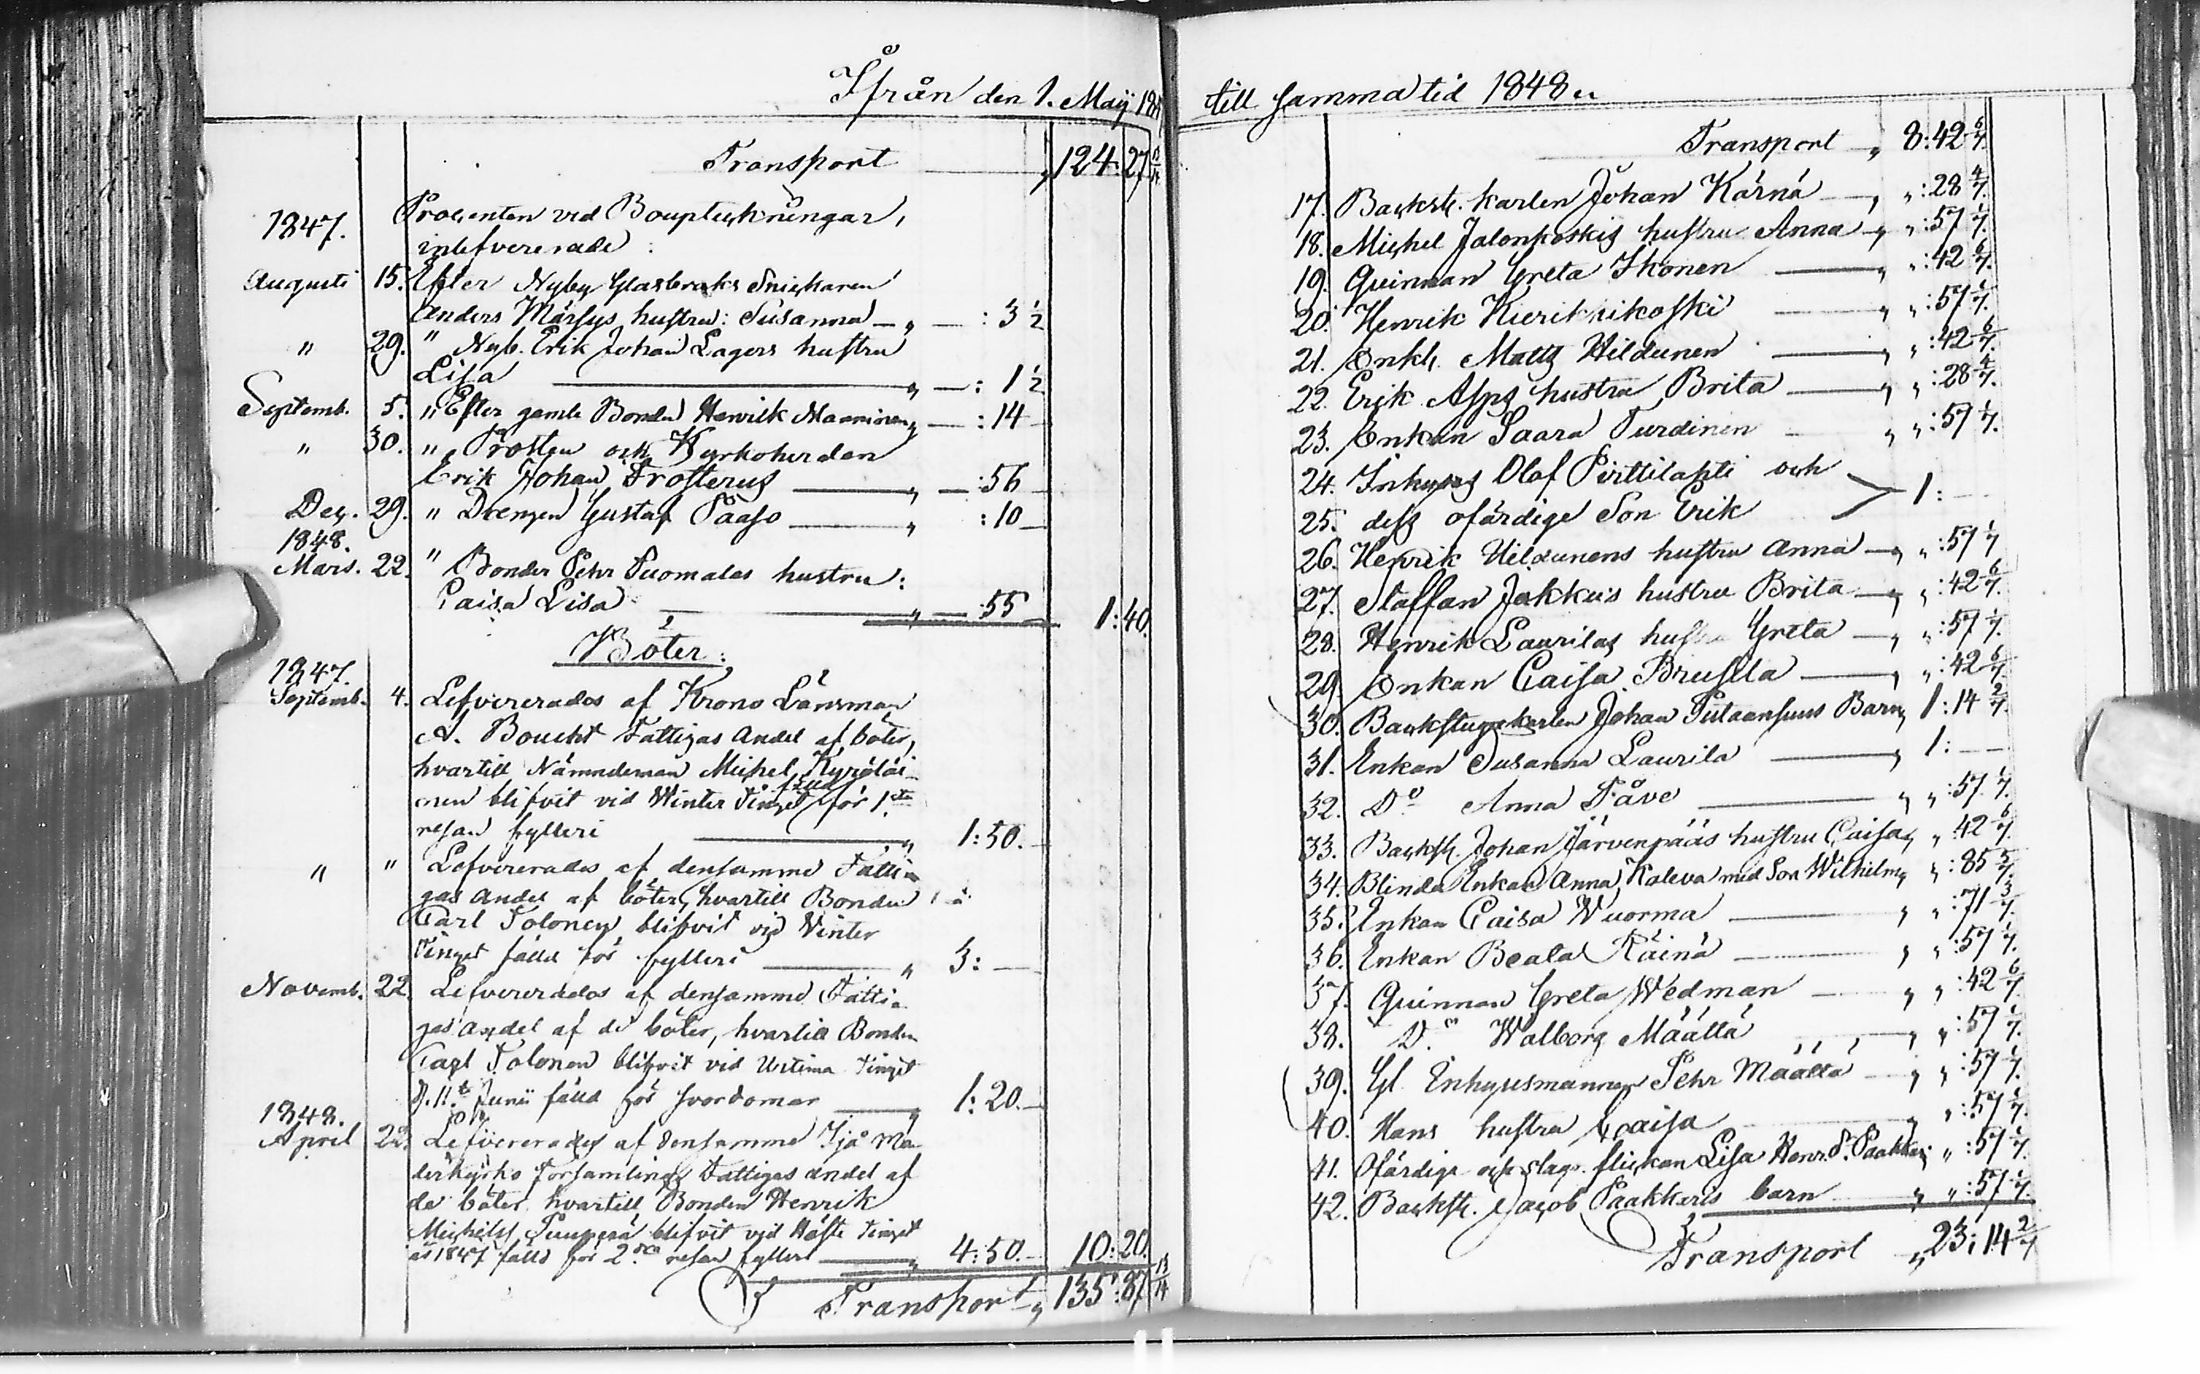 Ifrån den 1. Maij 184
Transport 124: 27 13/14
1847. Procenten vid Bouptekningar,
inlefvererade:
Augusti 15. Efter Nyby Glasbruks Snickaren
Anders Märsys hustru: Susanna — „ — : 3 1/2
" 29. " Nyb. Erik Johan Lagers hustru
Lisa — „ — : 1 1/2
Septemb. 5. " Efter gamle Bonden Henrik Manninen „ — : 14
" 30. " Prosten och Kyrkoherden
Erik Johan Frosterus — „ — : 56
Dec. 29. " Drengen Gustaf Paaso — „ : 10
1848.
Mars. 22. " Bonden Pehr Tuomalas hustru:
Caisa Lisa — „ — 55 1: 40.
Böter:
1847.
Septemb. 4. Lefvererades af Krono Länsman
A. Boucht Fattigas Andel af böter,
hvartill Nämndeman Michel Kyröläi-
nen blifvit vid Winter Tinget fälld för 1sta
resan fylleri — „ 1: 50.
" " Lefvererades af densamme Fatti-
gas andel af böter, hvartill Bonden
Carl Tolonen blifvit vid Vinter
Tinget fälld för fylleri — „ 3: —
Novemb. 22. Lefvererades af densamme Fatti-
gas andel af de böter, hvartill Bonden
Carl Tolonen blifvit vid Urtima Tinget
d. 11te Junii fälld för svordomar — „ 1: 20. —
1848.
April 22. Lefvererades af densamme Ijo Mo
derkyrko Församlings Fattigas andel af
de böter hvartill Bonden Henrik
Michelss. blifvit vid Höste Tinget
år 1847 fälld för 2dra resan fylleri — „ 4: 50. — 10: 20.
Transport „ 135: 87 13/14
till samma tid 1848 „
Transport „ 8: 42 6/7.
17. Backst. karlen Johan Kärnä — „ „ : 28 4/7.
18. Michel Jalonkoskis hustru Anna — „ „ : 57 1/7.
19. Quinnan Greta Ikonen — „ „ : 42 6/7.
20. Henrik Kierikkikoski — „ „ : 57 1/7.
21. Enkl. Matts Hildunen — „ „ : 42 6/7.
22. Erik Asps hustru Brita — „ „ : 28 4/7.
23. Enkan Saara Turdinen — „ „ : 57 1/7.
24. Inhyses Olof Pirttilahti och
25. dess ofärdige Son Erik 1: —
26. Henrik Hildunens hustru Anna — „ „ : 57 1/7
27. Staffan Jakkus hustru Brita — „ „ : 42 6/7.
28. Henrik Laurilas hustru Greta — „ „ : 57 1/7.
29. Enkan Caisa — „ „ : 42 6/7.
30. Backstugekarlen Johan Barn „ 1: 14 2/7.
31. Enkan Susanna Laurila — „ 1: —
32. Do Anna Påve — „ „ : 57 1/7.
33. Backst. Johan Järvenpääs hustru Caisa „ „ : 42 6/7.
34. Blinda Enkan Anna Kaleva med Son Wilhelm „ „ : 85 5/7.
35. Enkan Caisa Wuorma — „ „ : 71 3/7.
36. Enkan Beata Räinä — „ „ : 57 1/7.
37. Quinnan Greta Wedman — „ „ : 42 6/7.
38. Do Walborg Määttä „ „ „ : 57 1/7.
39. Gl. Inhysesmannen Pehr Määttä — „ „ : 57 1/7.
40. Hans hustru Caisa „ „ : 57 1/7.
41. Ofärdige och slags. flickan Lisa Henr. d. Paakkari „ : 57 1/7.
42. Backst. Jacob Paakkaris barn — „ „ : 57 1/7.
Transport „ 23: 14 2/7